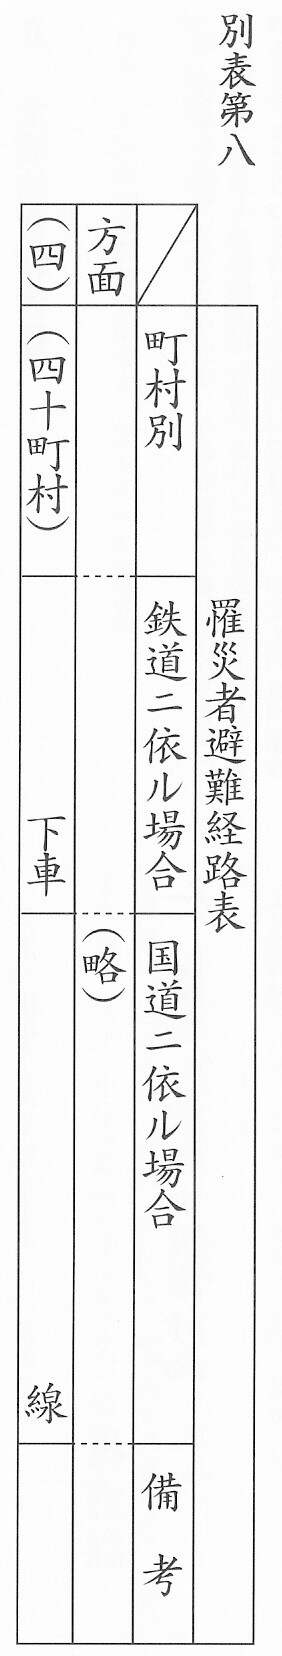 別表第八
罹災者避難経路表
町村別
鉄道ニ依ル場合
国道ニ依ル場合
備考
方面
(略)
(四)
(四十町村)
下車
線